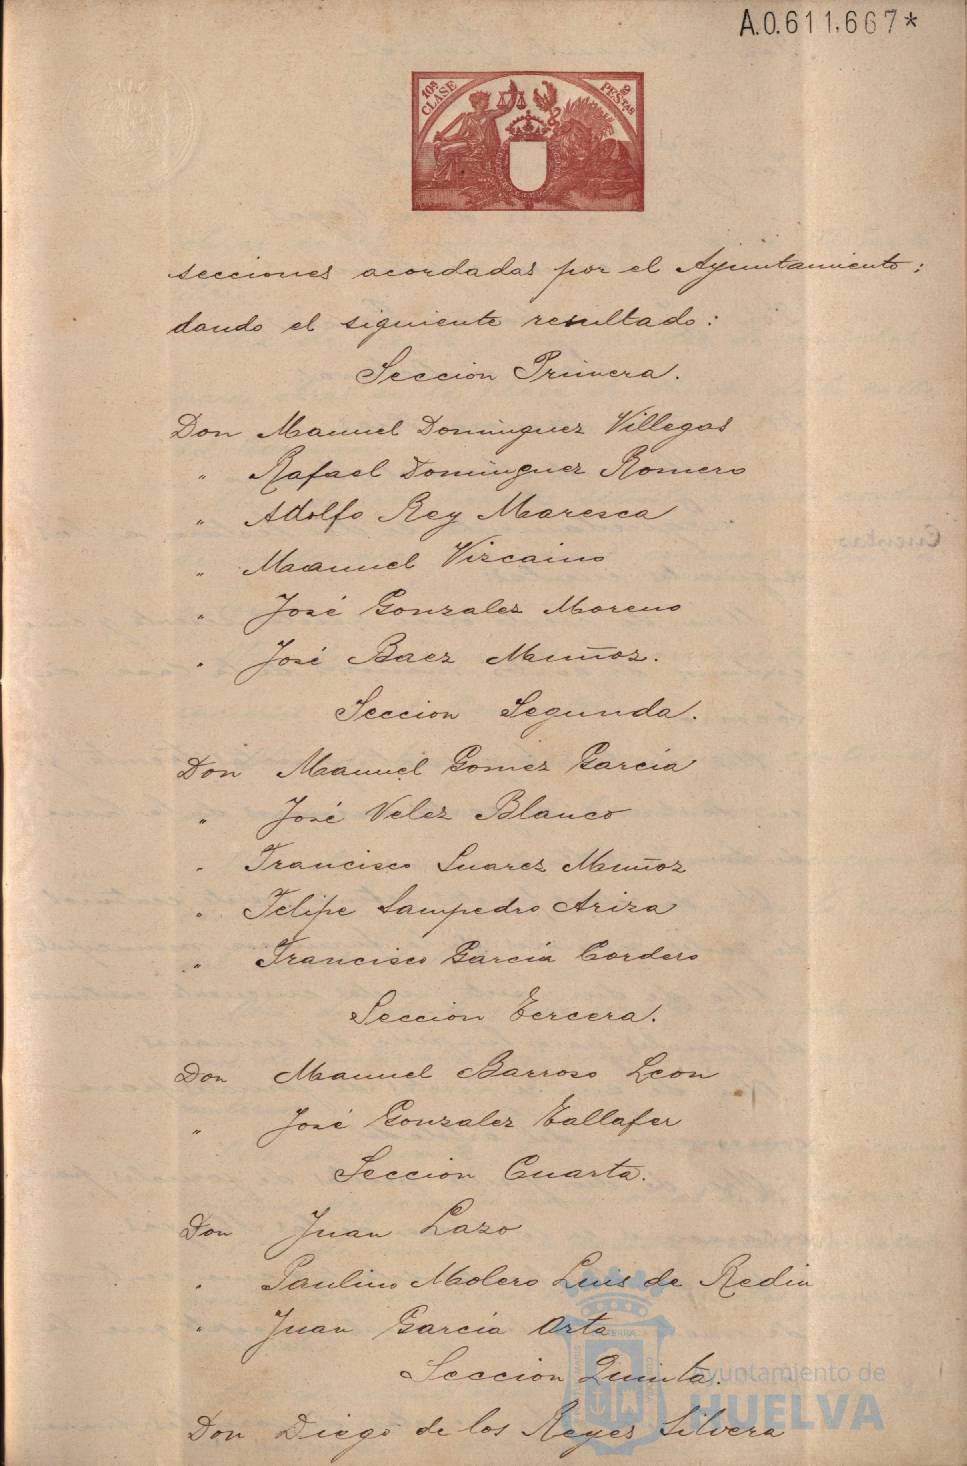 A.0.611,667*
10ª CLASE
2 PESTAS
secciones acordadas por el Ayuntamiento;
dando el siguiente resultado:
Seccion Primera.
Don Manuel Dominguez Villegas
" Rafael Dominguez Romero
" Adolfo Rey Maresca
" Manuel Vizcaino
" José Gonzalez Moreno
" José Baez Muñoz.
Seccion Segunda.
Don Manuel Gomez García
" José Velez Blanco
" Francisco Suarez Muñoz
" Felipe Sampedro Ariza
" Francisco García Cordero
Seccion Tercera.
Don Manuel Barroso Leon
" José Gonzalez Tallafer
Seccion Cuarta.
Don Juan Lazo
" Paulino Molero Luis de Redin
" Juan García Orta
Seccion Quinta.
Don Diego de los Reyes Silvera
Ayuntamiento de
HUELVA